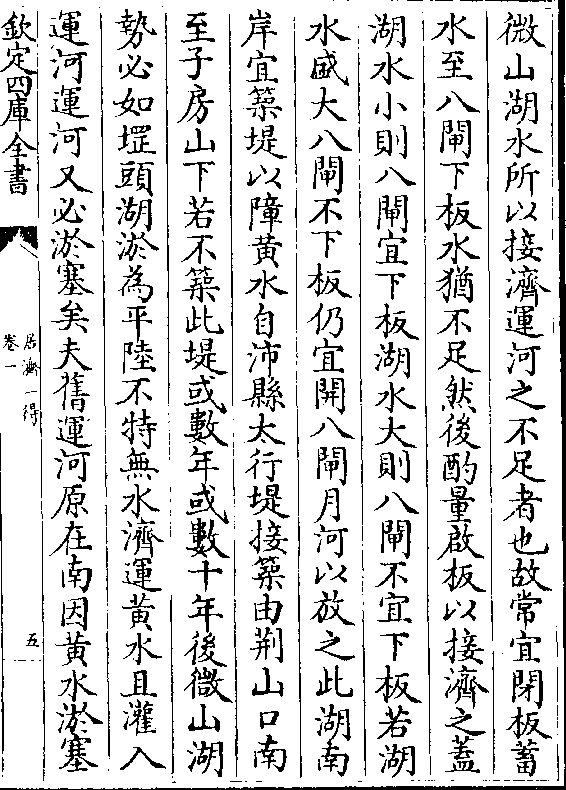 微山湖水所以接濟運河之不足者也故常宜閉板蓄
水至八閘下板水猶不足然後酌量啟板以接濟之蓋
湖水小則八閘宜下板湖水大則八閘不宜下板若湖
水盛大八閘不下板仍宜開八閘月河以放之此湖南
岸宜築堤以障黄水自沛縣太行堤接築由荆山口南
至子房山下若不築此堤或數年或數十年後微山湖
勢必如堽頭湖淤為平陸不特無水濟運黄水且灌入
運河運河又必淤塞矣夫舊運河原在南因黄水淤塞
欽定四庫全書
居濟一得
卷一
五